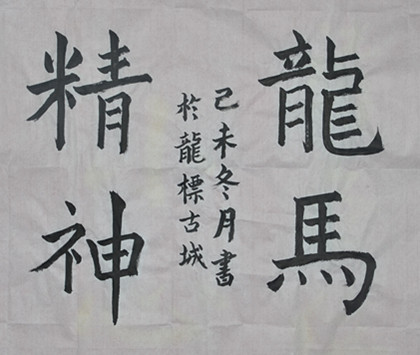 龍馬
己未冬月書
於龍標古城
精神